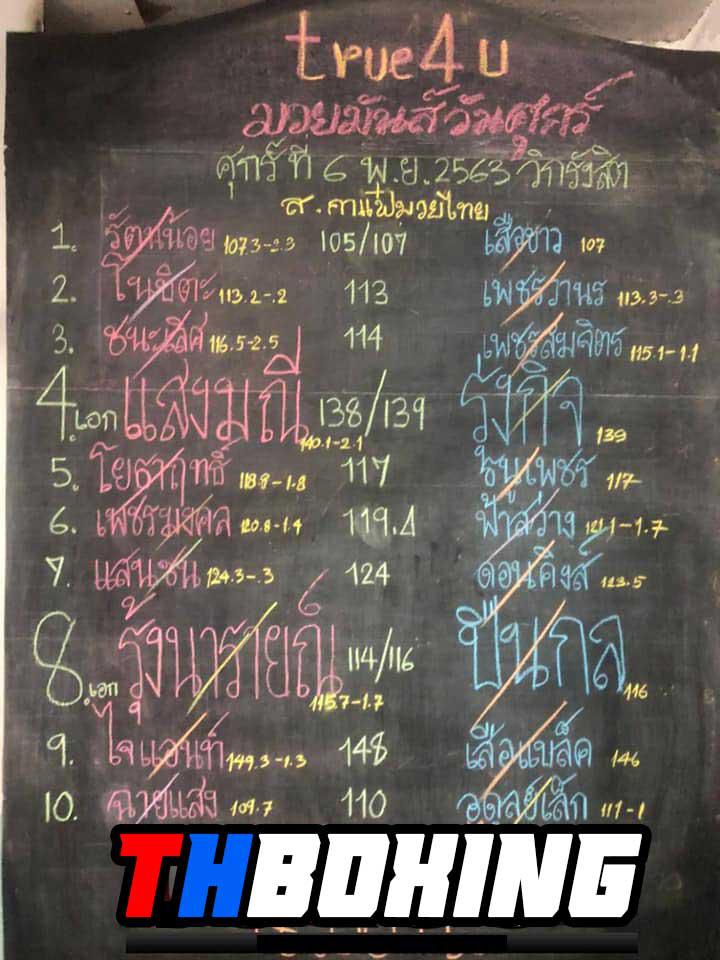 true4u
มวยมันส์วันศุกร์
ศุกร์ที่ 6 พ.ย.2563 วิกรังสิต
ส.คาเฟ่มวยไทย
1. รัตน์น้อย 107.3-2.3 105/107 เสือขาว 107
2. โนบิตะ 113.2-.2 113 เพชรวานร 113.3-.3
3. ชนะเลิศ 116.5-2.5 114 เพชรสมจิตร 115.1-1.1
4.เอก แสงมณี 140.1-2.1 138/139 รุ่งกิจ 139
5. โยธาฤทธิ์ 118.8-1.8 117 ธนูเพชร 117
6. เพชรมงคล 120.8-1.4 119.4 ฟ้าสว่าง 121.1-1.7
7. แสนซน 124.3-.3 124 ดอนคิงส์ 123.5
8.เอก รุ้งนารายณ์ 115.7-1.7 114/116 ปืนกล 116
9. ไจแอนท์ 149.3-1.3 148 เสือแบล็ค 146
10. ฉายแสง 109.7 110 อดุลย์เล็ก 111-1
THBOXING